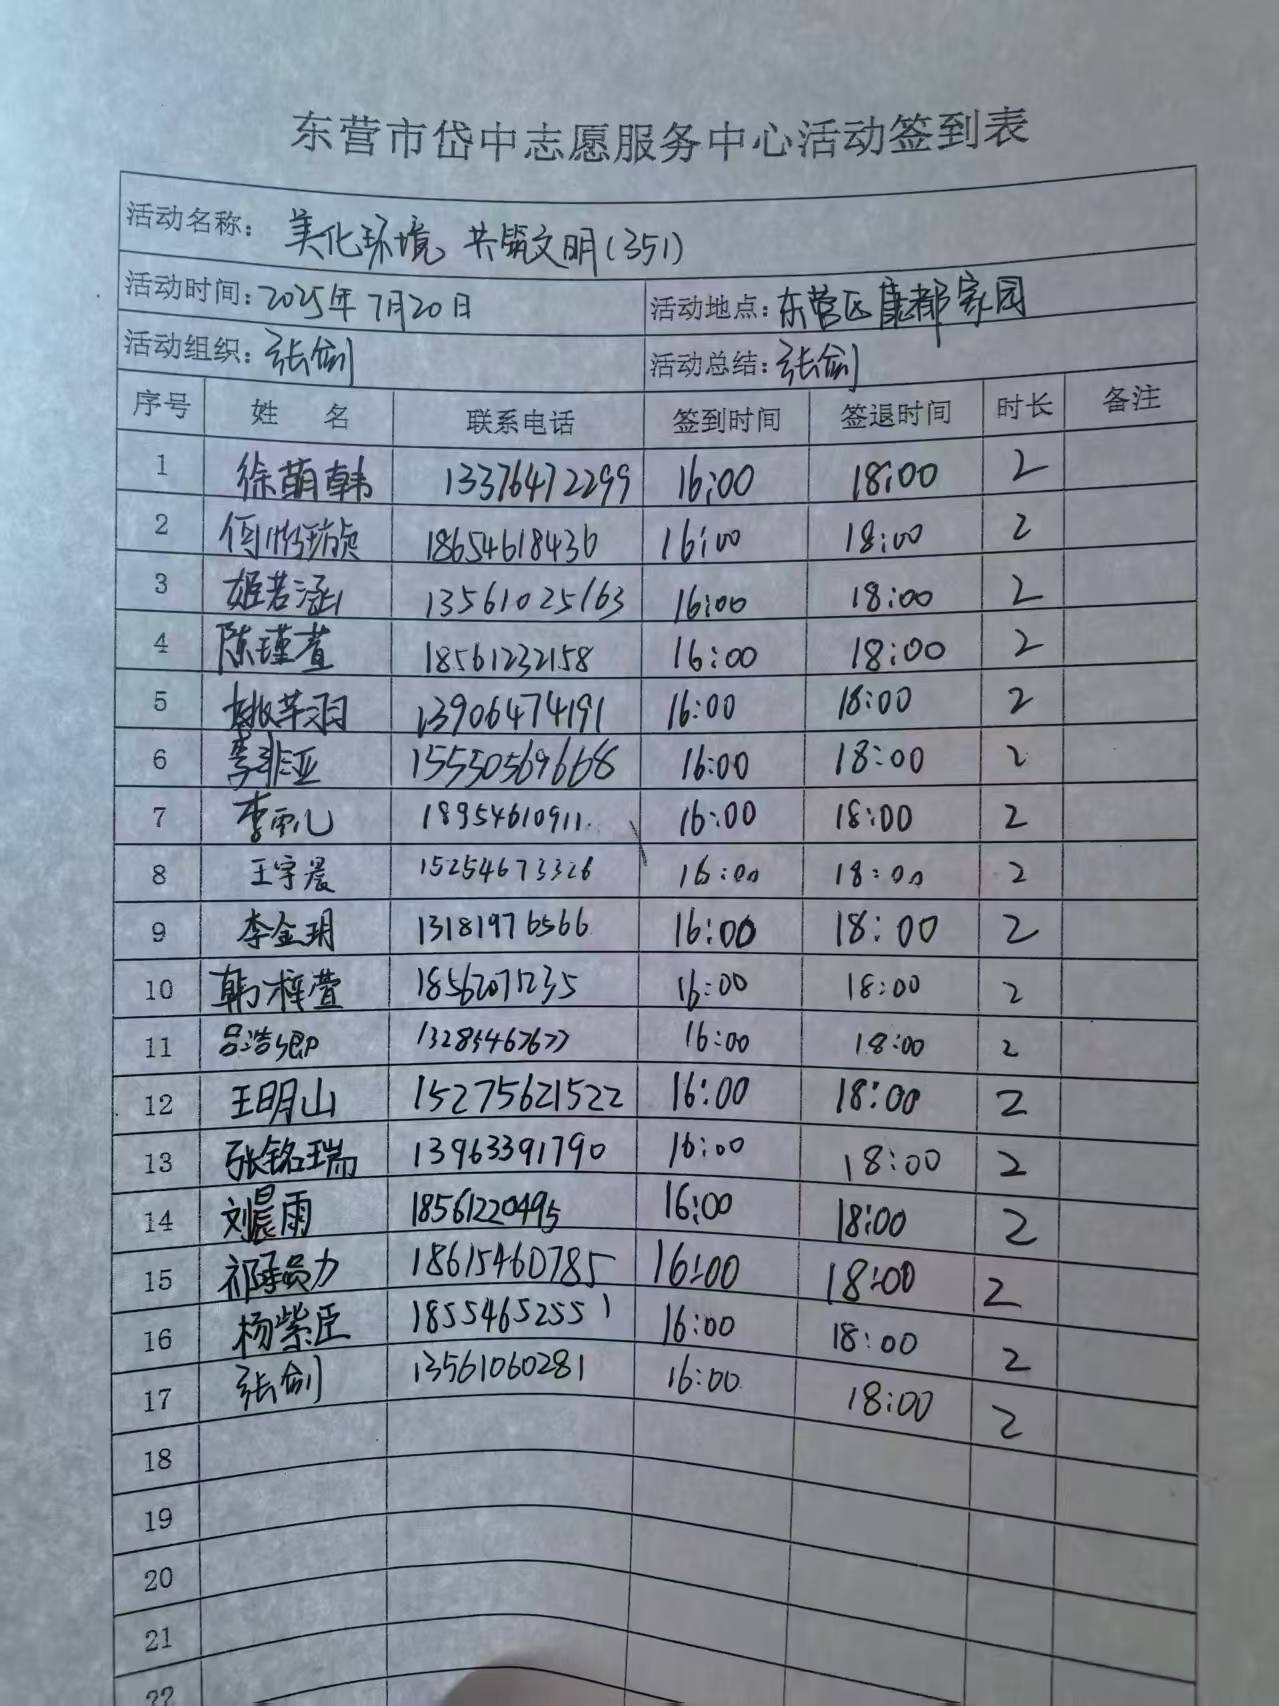 东营市岱中志愿服务中心活动签到表
活动名称: 美化环境,共筑文明(351)
活动时间: 2025年7月20日 活动地点: 东营区康都家园
活动组织: 张剑 活动总结: 张剑
序号 姓 名 联系电话 签到时间 签退时间 时长 备注
1 徐萌韩 13376472299 16:00 18:00 2
2 18654618436 16:00 18:00 2
3 姬若涵 13561025163 16:00 18:00 2
4 陈瑾萱 18561232158 16:00 18:00 2
5 姚芊羽 13906474191 16:00 18:00 2
6 李非亚 15550569668 16:00 18:00 2
7 李雨儿 18954610911 16:00 18:00 2
8 王宇晨 15254673326 16:00 18:00 2
9 李金玥 13181976566 16:00 18:00 2
10 韩梓萱 18562071235 16:00 18:00 2
11 16:00 18:00 2
12 王明山 15275621522 16:00 18:00 2
13 张铭瑞 13963391790 16:00 18:00 2
14 刘晨雨 18561220495 16:00 18:00 2
15 18615460785 16:00 18:00 2
16 杨紫臣 18554652551 16:00 18:00 2
17 张剑 13561060281 16:00 18:00 2
18
19
20
21
22